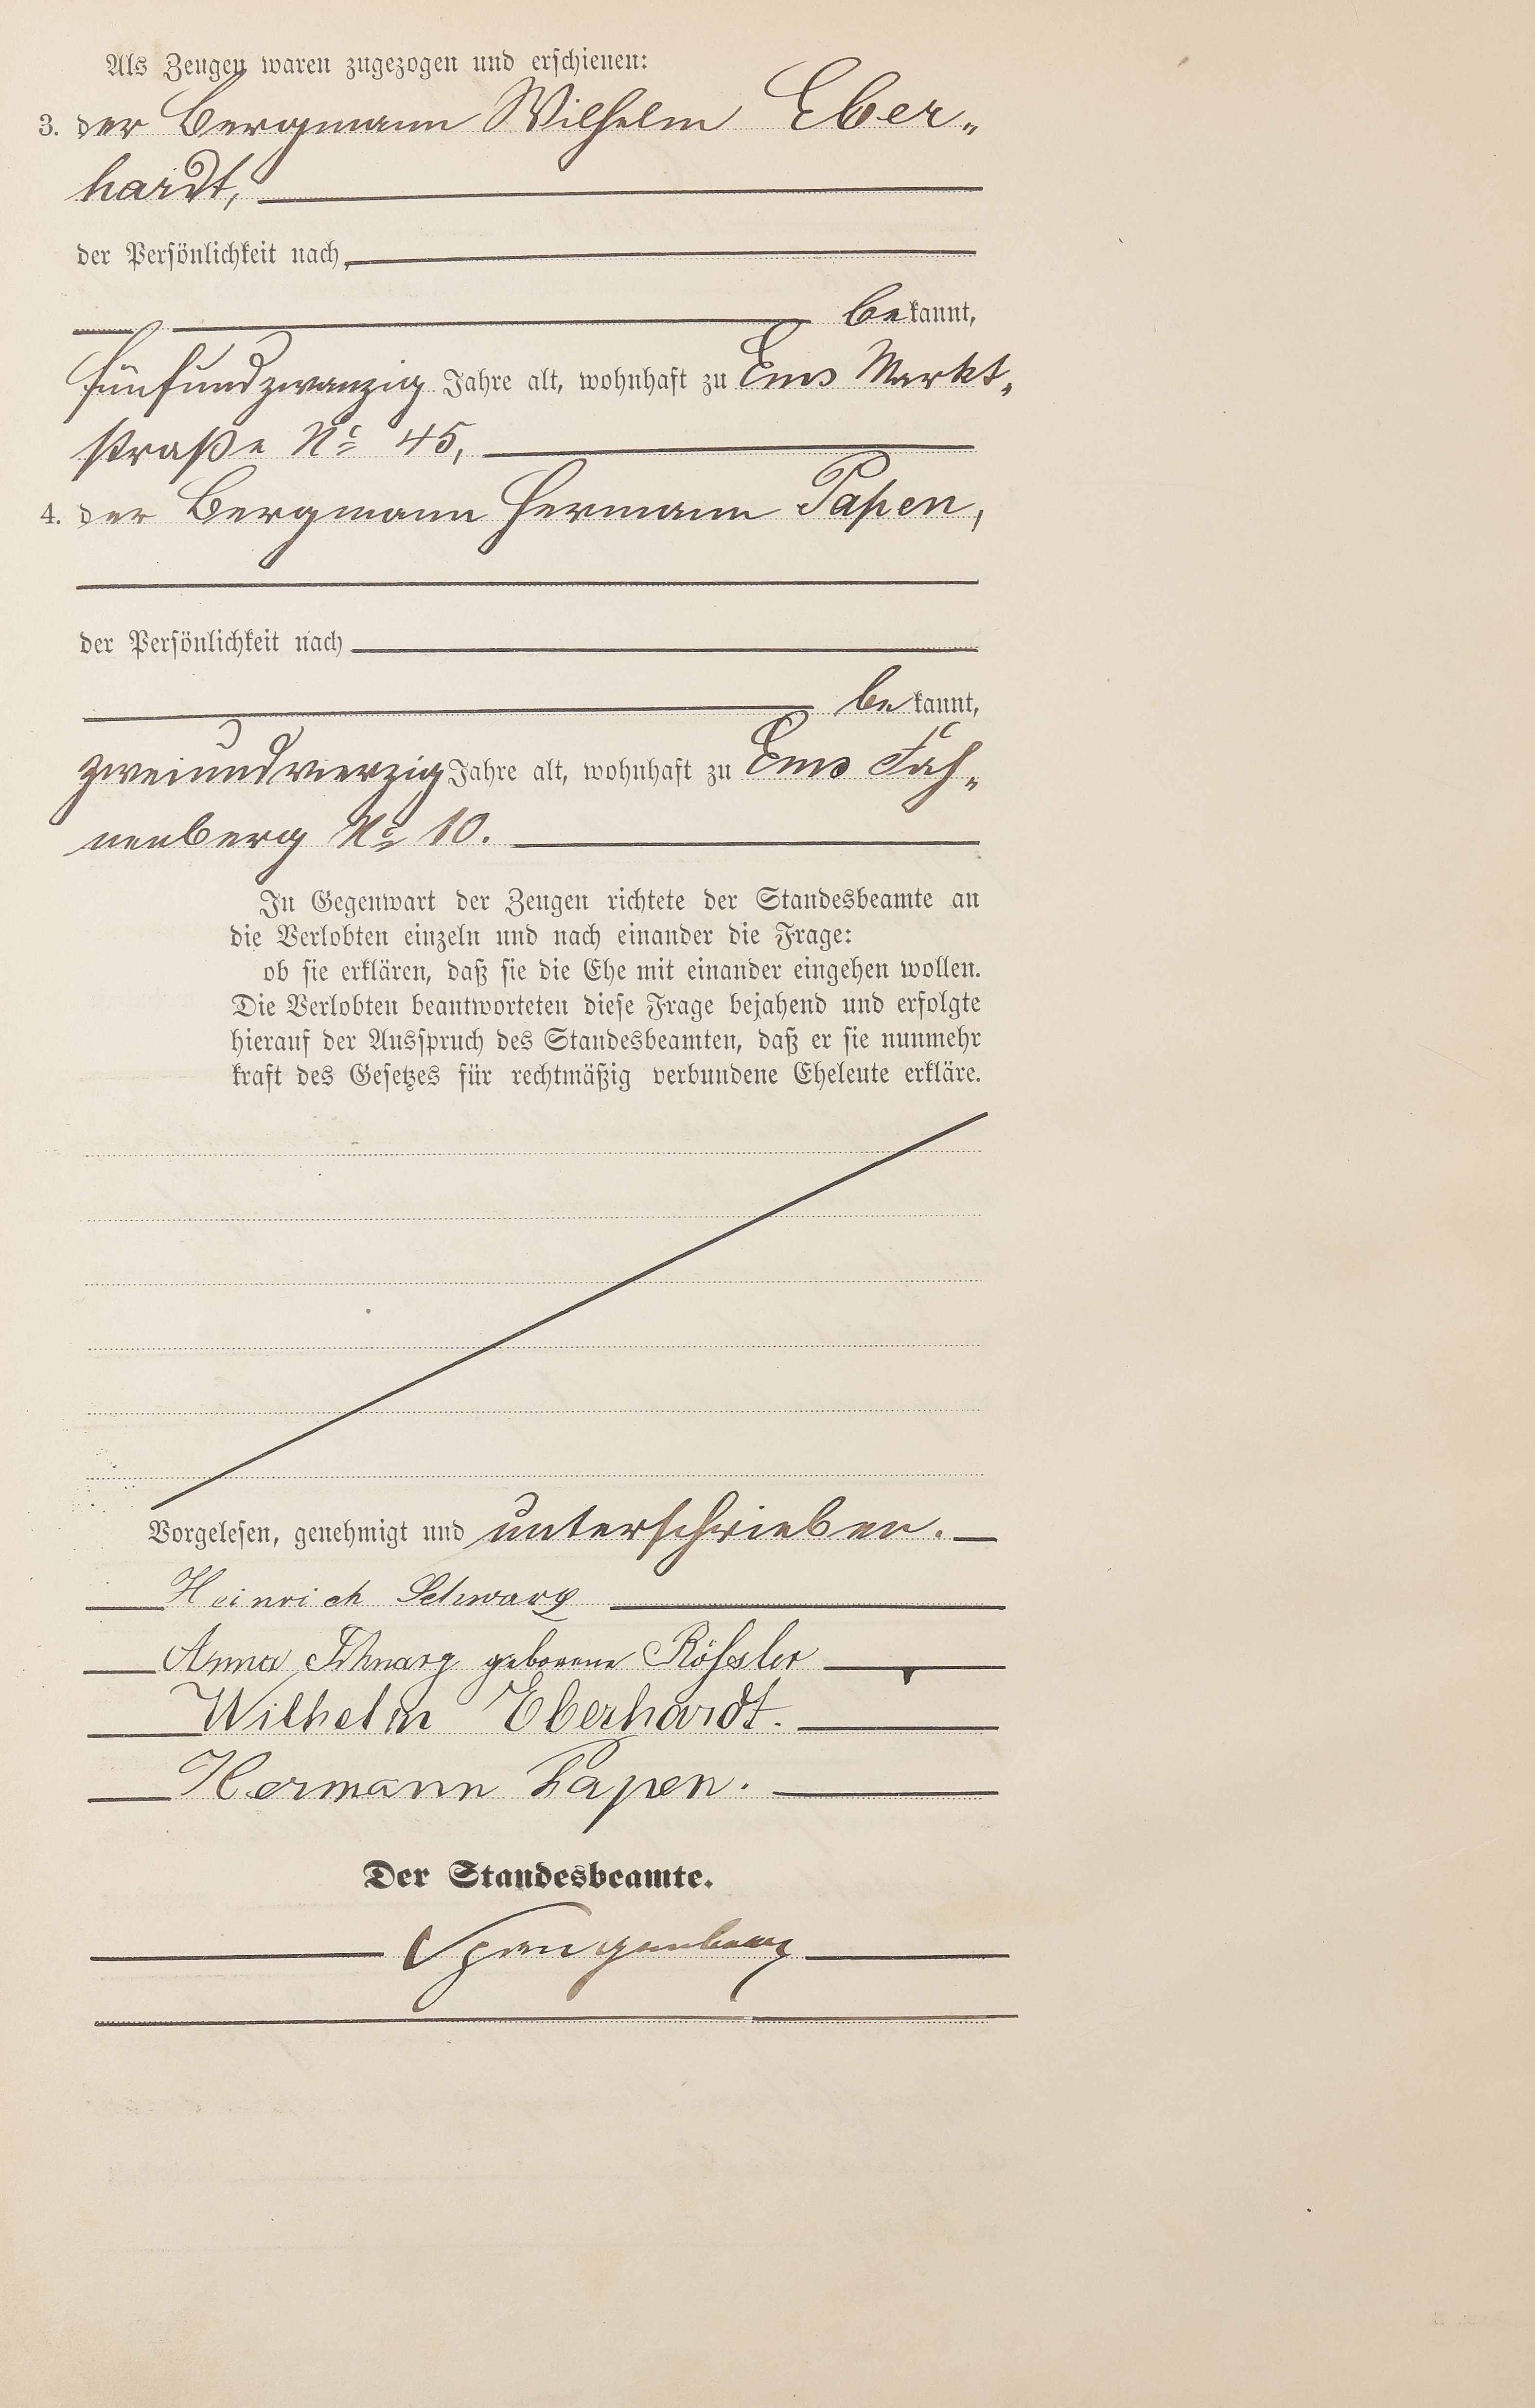 Als Zeugen waren zugezogen und erschienen:
3. der Bergmann Wilhelm Eber„
hardt,
der Persönlichkeit nach
bekannt,
fünfundzwanzig Jahre alt, wohnhaft zu Ems Markt„
straße No 45,
4. der Bergmann Hermann Papen,
der Persönlichkeit nach
bekannt,
zweiundvierzig Jahre alt, wohnhaft zu Ems Fäh„
nenberg No 10.
In Gegenwart der Zeugen richtete der Standesbeamte an
die Verlobten einzeln und nach einander die Frage:
ob sie erklären, daß sie die Ehe mit einander eingehen wollen.
Die Verlobten beantworteten diese Frage bejahend und erfolgte
hierauf der Ausspruch des Standesbeamten, daß er sie nunmehr
kraft des Gesetzes für rechtmäßig verbundene Eheleute erkläre.
Vorgelesen, genehmigt und unterschrieben.
Heinrich Schwarz
Anna Schwarz geborene Rößler
Wilhelm Eberhardt.
Hermann Papen.
Der Standesbeamte.
Spangenberg